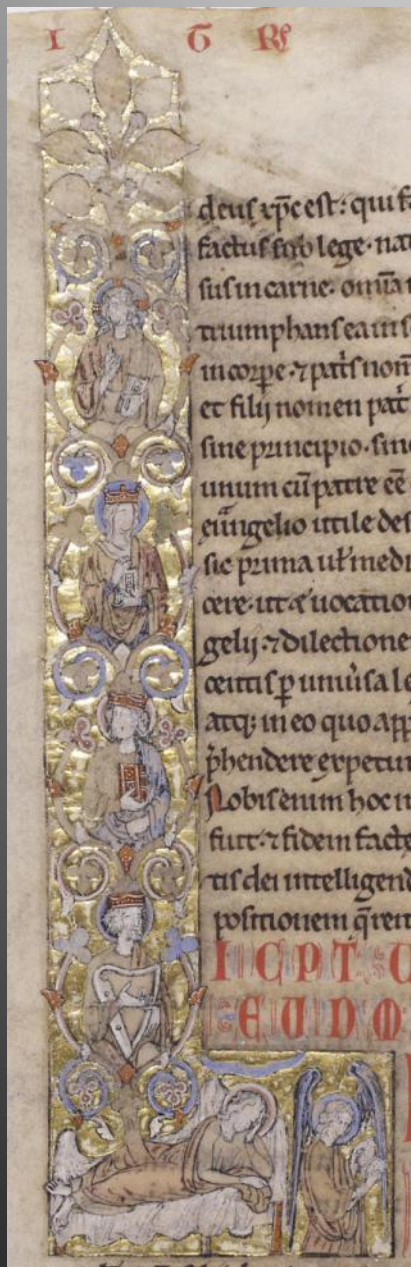 I G R
deus xp̄c est: qui fa
factus sub lege. nat
sus in carne. omīa i
triumphans ea in s
in corpe. ⁊ patris nom
et filij nomen pat
sine principio. sine
unum cū patre eē
euāgelio utile des
sic prima ul' medi
cere. ut ⁊ uocation
gelij ⁊ dilectione
centis p uniūsa le
atq; in eo quo app
p̄hendere expetun
Nobis enim hoc in
fuit. ⁊ fidem facte
tis dei intelligend
positionem q̄ren
ICPT
EUDM